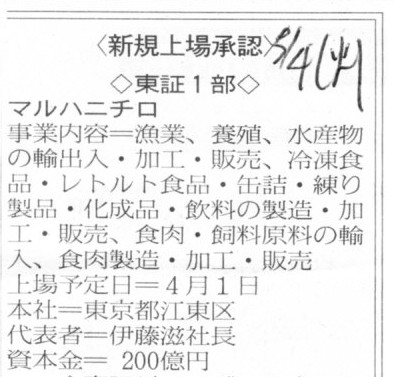 〈新規上場承認〉3/4(火)
◇東証1部◇
マルハニチロ
事業内容＝漁業、養殖、水産物
の輸出入・加工・販売、冷凍食
品・レトルト食品・缶詰・練り
製品・化成品・飲料の製造・加
工・販売、食肉・飼料原料の輸
入、食肉製造・加工・販売
上場予定日＝4月1日
本社＝東京都江東区
代表者＝伊藤滋社長
資本金＝ 200億円